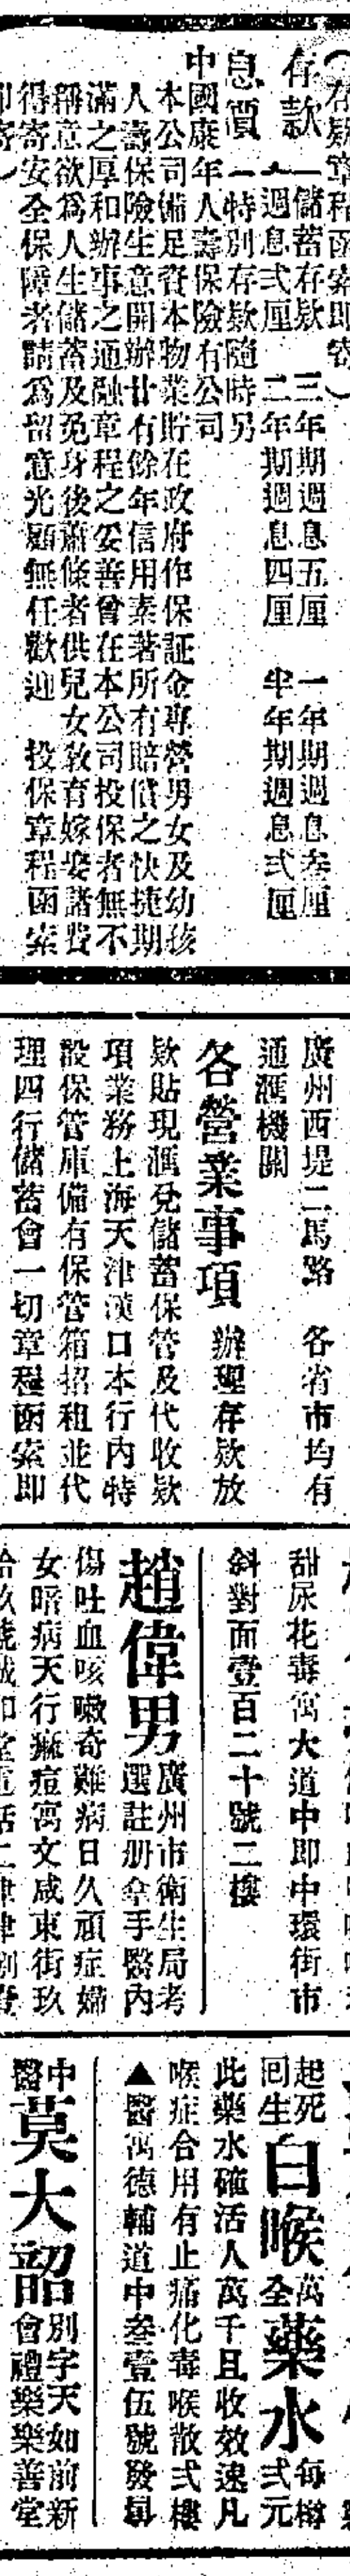 存款章程函索即寄）
存款 一儲蓄存欵 三年期週息五厘 一年期週息叁厘
一週息弍厘 二年期週息四厘 半年期週息弍厘
息價 一特別存欵隨時另
中國康年人壽保險有公司
本公司備足資本物業貯在政府作保証金專營男女及幼孩
人壽保險生意開辦廿有餘年信用素著所有賠償之快捷期
滿之厚和辦事之通融章程之妥善曾在本公司投保者無不
稱意欲爲人生儲蓄及免身後蕭條者供兒女敎育嫁娶諸費
得寄安全保障者請爲留意光顧無任歡迎 投保章程函索
即寄）
廣州西堤二馬路 各省市均有
通滙機關
各營業事項 辦理存欵放
欵貼現滙兌儲蓄保管及代收欵
項業務上海天津漢口本行內特
設保管庫備有保管箱招租並代
理四行儲蓄會一切章程函索即
甜尿花毒寓大道中即中環街市
斜對面壹百二十號二樓
趙偉男 廣州市衛生局考
選註册拿手醫內
傷吐血咳嗽奇難病日久頑症婦
女暗病天行痲痘寓文咸東街玖
起死回生 白喉 萬全 藥水 每樽弍元
此藥水確活人萬千且收效速凡
喉症合用有止痛化毒喉散弍樓
▲醫寓德輔道中叁壹伍號發
中醫 莫大韶 別字天如前新
會禮樂樂善堂